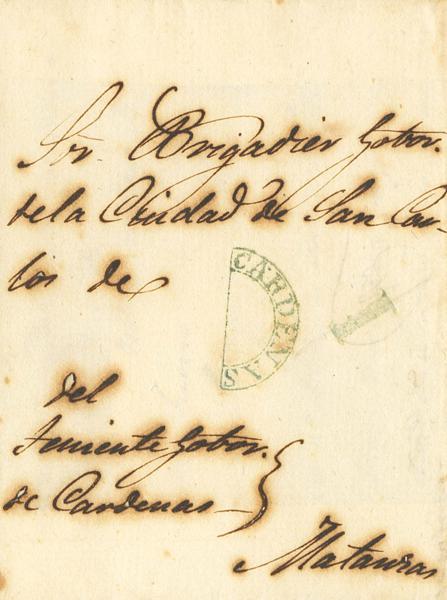 Sor. Brigadier Gobor.
de la Ciudad de San Car-
los de
CARDENAS
del
Teniente Gobor.
de Cardenas
Matanzas